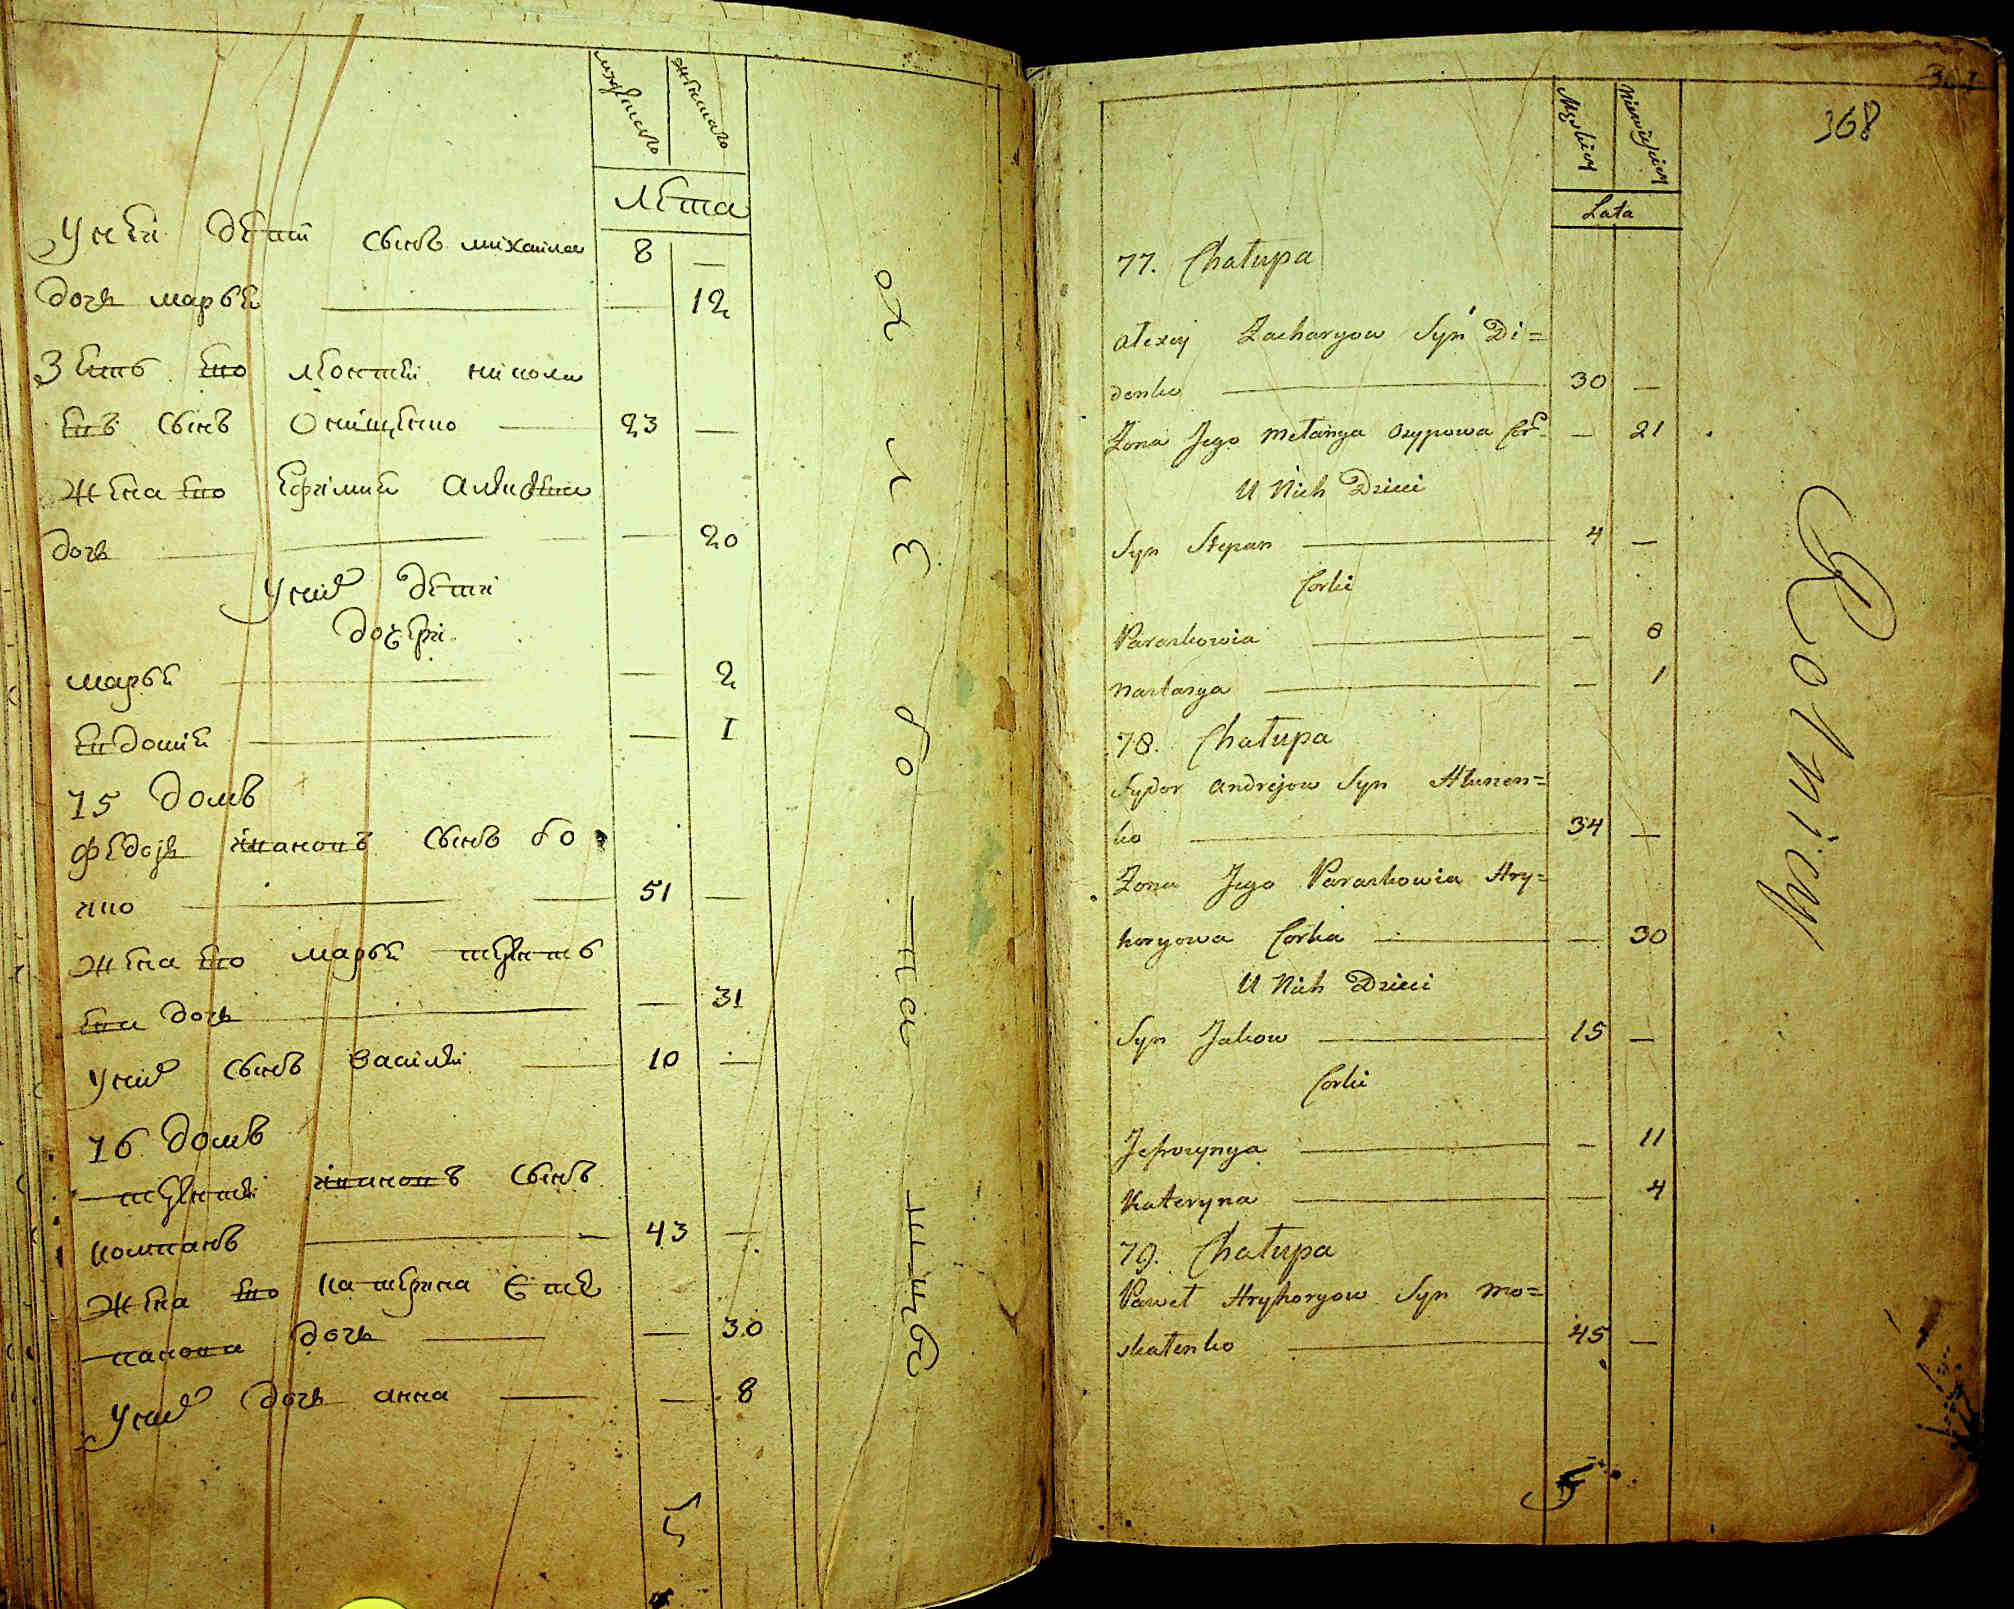 мужеска
женска
Лета
У неи дети сынъ михаила 8 —
дочь марья — 12
Зять его леонтеи никола
евъ сынъ Онищенко 23 —
жена его
дочь — 20
У них дети
дочери
марья — 2
евдокия — 1
75 домъ
федоръ ивановъ сынъ бо
ико 51 —
жена его марья терентъ
ева дочь — 31
У них сынъ василеи 10 —
76 домъ
терентеи ивановъ сынъ
компанъ 43 —
жена его катерина сте
панова дочь — 30
У них дочь анна — 8
368
Męskiey
Niewieskiey
Lata
77. Chałupa
Alexey Zacharyow Syn Di=
denko 30 —
Zona Jego Mełanya Osypowa Cor. — 21
U Nich Dzieci
Syn Stepan 4 —
Corki
Paraskowia — 8
Nastasya — 1
78. Chałupa
Sydor Andrejow Syn Hłunen=
ko 34 —
Zona Jego Paraskowia Hry=
horyowa Corka — 30
U Nich Dzieci
Syn Jakow 15 —
Corki
Jefrozynya — 11
Kateryna — 4
79. Chałupa
Paweł Hryhoryow Syn Mo=
skałenko 45 —
Rolnicy